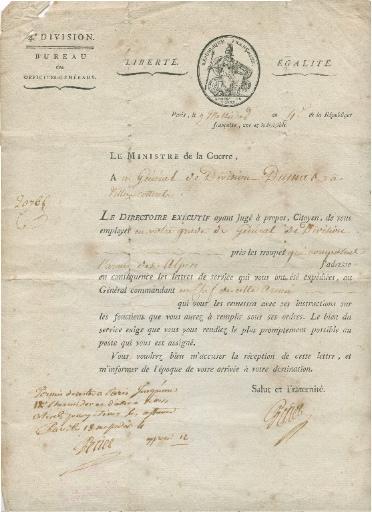 4e DIVISION.
BUREAU
des
OFFICIERS-GÉNÉRAUX.
LIBERTÉ.
ÉGALITÉ.
RÉPUBLIQUE FRANÇAISE
Paris, le 9 Messidor an 4e de la République
française, une et indivisible.
LE MINISTRE de la Guerre,
A u Général de Division Dumas, à
Villers-cotterets
LE DIRECTOIRE EXÉCUTIF ayant jugé à propos, Citoyen, de vous
employer en votre grade de Général de Division
près les troupes qui composent
l'armée des Alpes j'adresse
en conséquence les lettres de service qui vous ont été expédiées, au
Général commandant en chef de cette armée
qui vous les remettra avec ses instructions sur
les fonctions que vous aurez à remplir sous ses ordres. Le bien du
service exige que vous vous rendiez le plus promptement possible au
poste qui vous est assigné.
Vous voudrez bien m'accuser la réception de cette lettre, et
m'informer de l'époque de votre arrivée à votre destination.
Salut et Fraternité.
Permis de rester à Paris